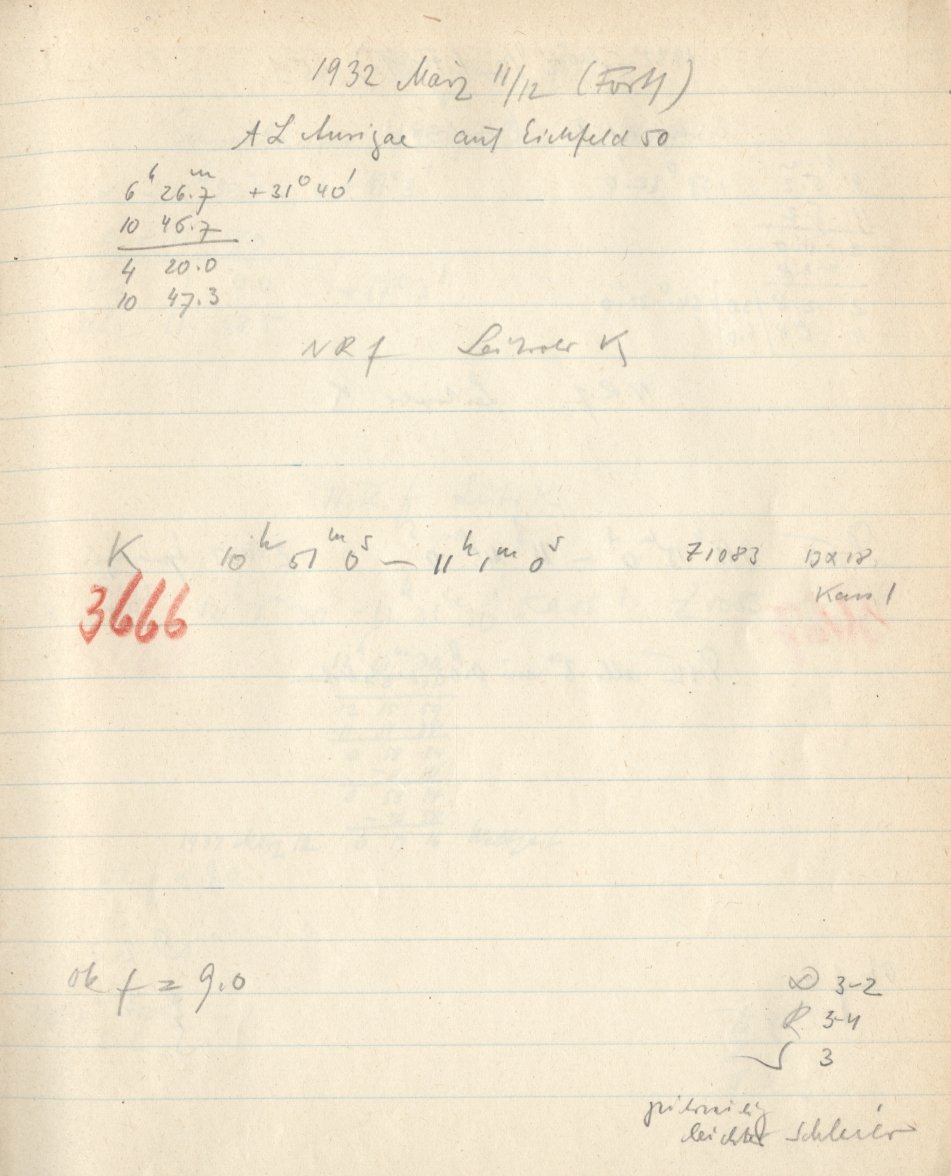 1932 März 11/12 (Forts)
AL Aurigae auf Eichfeld 50
6h 26.7m +31° 40'
10 46.7
4 20.0
10 47.3
NRf Leitrohr K
K 10h 51m 0s — 11h 1m 0s 71083 13x18
Kass 1
3666
ok f = 9.0
3-2
R 3-4
3
zeitweilig
leichter Schleier